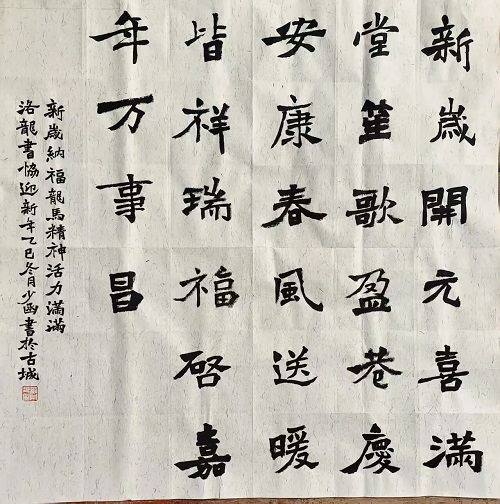 新歲開元喜滿
堂笙歌盈巷慶
安康春風送暖
皆祥瑞福啓嘉
年万事昌
新歲納福龍馬精神活力滿滿
洛龍書協迎新年乙巳冬月少西書於古城